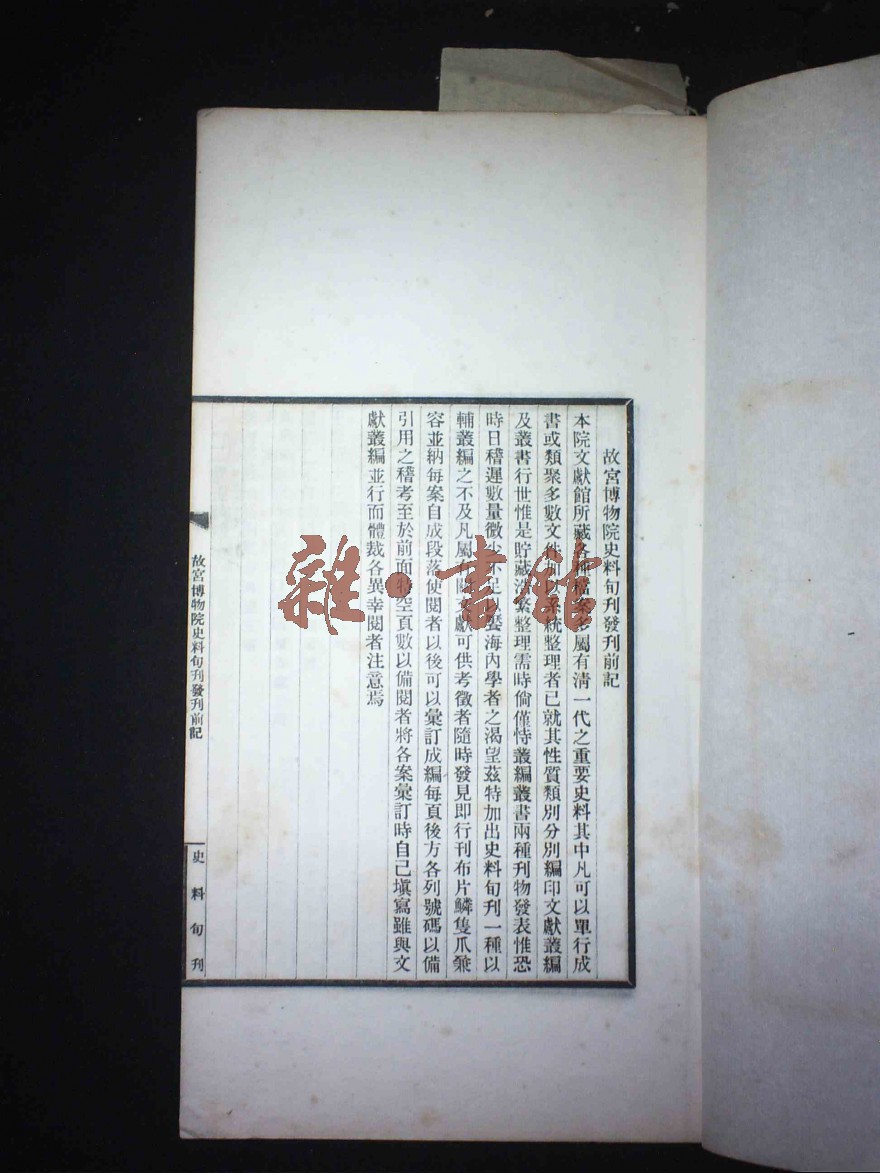 故宮博物院史料旬刊發刊前記
本院文獻館所藏各種檔案多屬有淸一代之重要史料其中凡可以單行成
書或類聚多數文件加以系統整理者已就其性質類別分別編印文獻叢編
及叢書行世惟是貯藏浩繁整理需時倘僅恃叢編叢書兩種刋物發表惟恐
時日稽遲數量微少不足以饜海內學者之渴望茲特加出史料旬刊一種以
輔叢編之不及凡屬有關文獻可供考徵者隨時發見即行刊布片鱗隻爪兼
容並納每案自成段落使閱者以後可以彙訂成編每頁後方各列號碼以備
引用之稽考至於前面特空頁數以備閱者將各案彙訂時自己塡寫雖與文
獻叢編並行而體裁各異幸閱者注意焉
故宮博物院史料旬刊發刊前記
史料旬刊
雜·書館